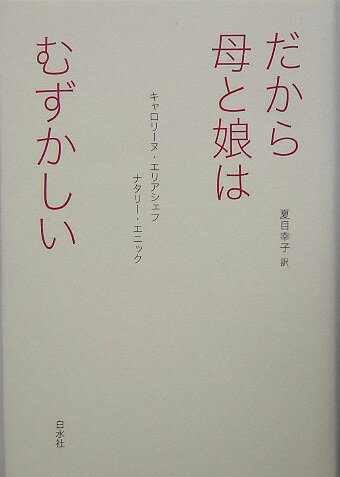 だから
母と娘は
むずかしい
キャロリーヌ・エリアシェフ
ナタリー・エニック
夏目幸子 訳
白水社